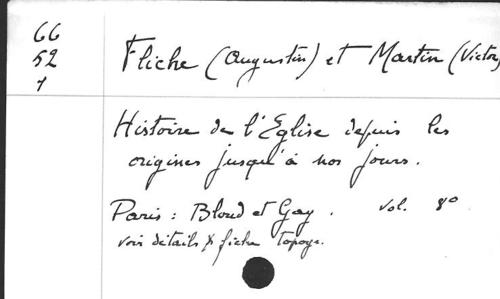 66
52
1
Fliche (Augustin) et Martin (Victor)
Histoire de l'Eglise depuis les
origines jusqu'à nos jours.
Paris : Bloud et Gay. vol. 8°
voir détails fiche topogr.